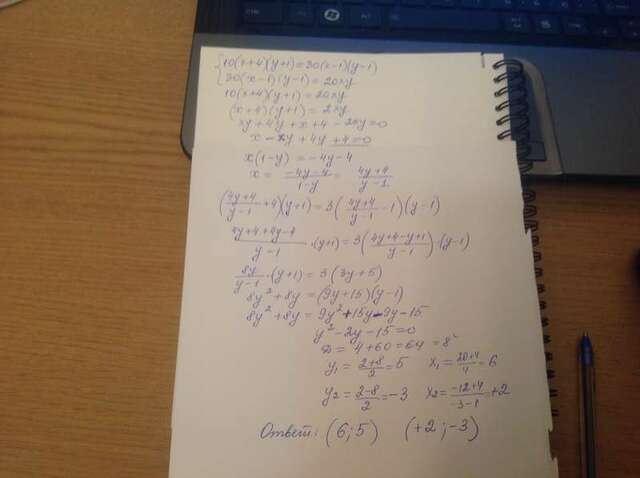 {10(x+4)(y+1)=30(x-1)(y-1)
30(x-1)(y-1)=20xy
10(x+4)(y+1)=20xy
(x+4)(y+1)=2xy
xy+4y+x+4-2xy=0
x-xy+4y+4=0
x(1-y)=-4y-4
x= (-4y-4)/(1-y) = (4y+4)/(y-1)
((4y+4)/(y-1)+4)(y+1)=3((4y+4)/(y-1)-1)(y-1)
(4y+4+4y-4)/(y-1)·(y+1)=3((4y+4-y+1)/(y-1))·(y-1)
8y/(y-1)·(y+1)=3(3y+5)
8y²+8y=(9y+15)(y-1)
8y²+8y=9y²+15y-9y-15
y²-2y-15=0
D=4+60=64=8²
y₁=(2+8)/2=5 x₁=(20+4)/4=6
y₂=(2-8)/2=-3 x₂=(-12+4)/(-3-1)=+2
Ответ: (6;5) (+2;-3)